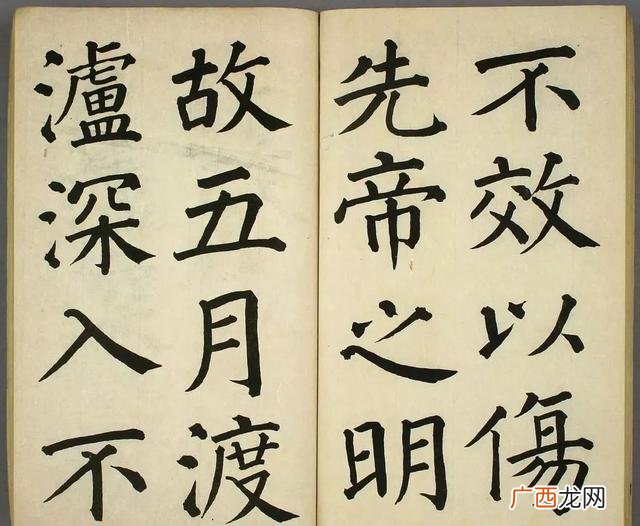 不效以傷
先帝之明
故五月渡
瀘深入不
广西龙网